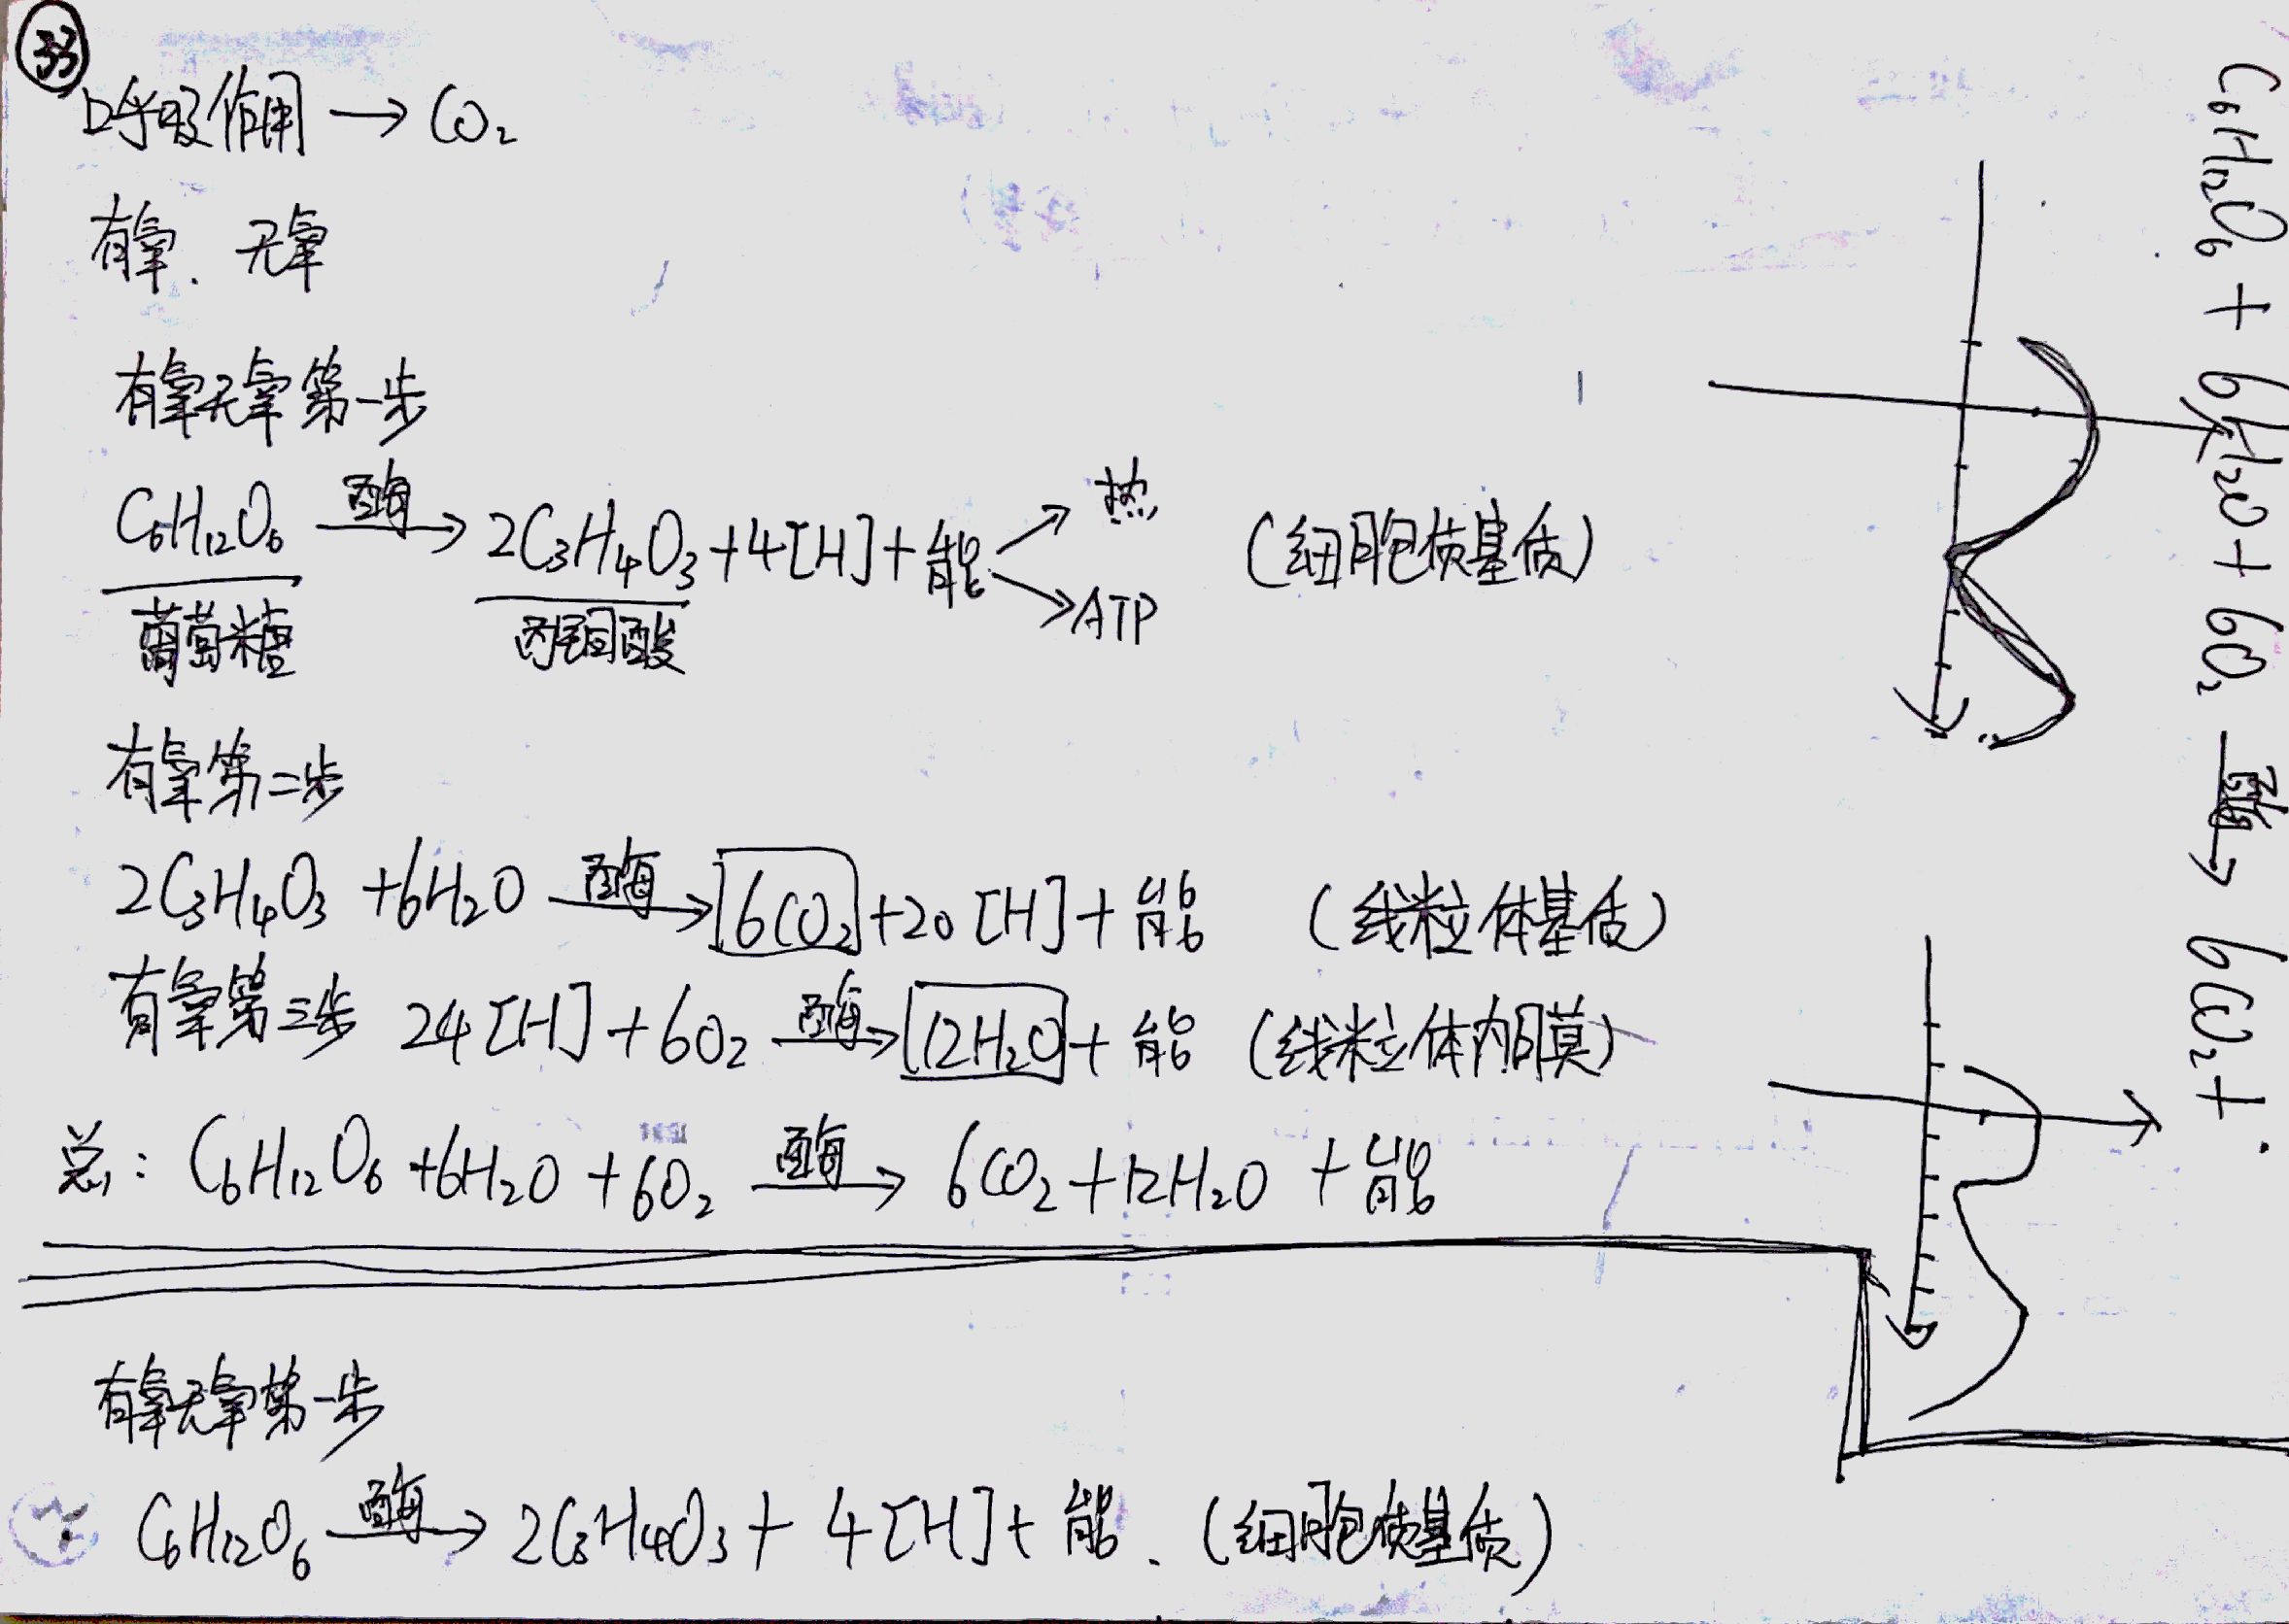 33
呼吸作用 → CO₂
有氧. 无氧
有氧无氧第一步
C₆H₁₂O₆ 酶→ 2C₃H₄O₃+4[H]+能 热 ATP (细胞质基质)
葡萄糖 丙酮酸
有氧第二步
2C₃H₄O₃ +6H₂O 酶→ 6CO₂+20[H]+能 (线粒体基质)
有氧第三步 24[H]+6O₂ 酶→ 12H₂O+能 (线粒体内膜)
总: C₆H₁₂O₆+6H₂O+6O₂ 酶→ 6CO₂+12H₂O+能
有氧无氧第一步
C₆H₁₂O₆ 酶→ 2C₃H₄O₃+4[H]+能. (细胞质基质)
C₆H₁₂O₆+6H₂O+6O₂ 酶→ 6CO₂+